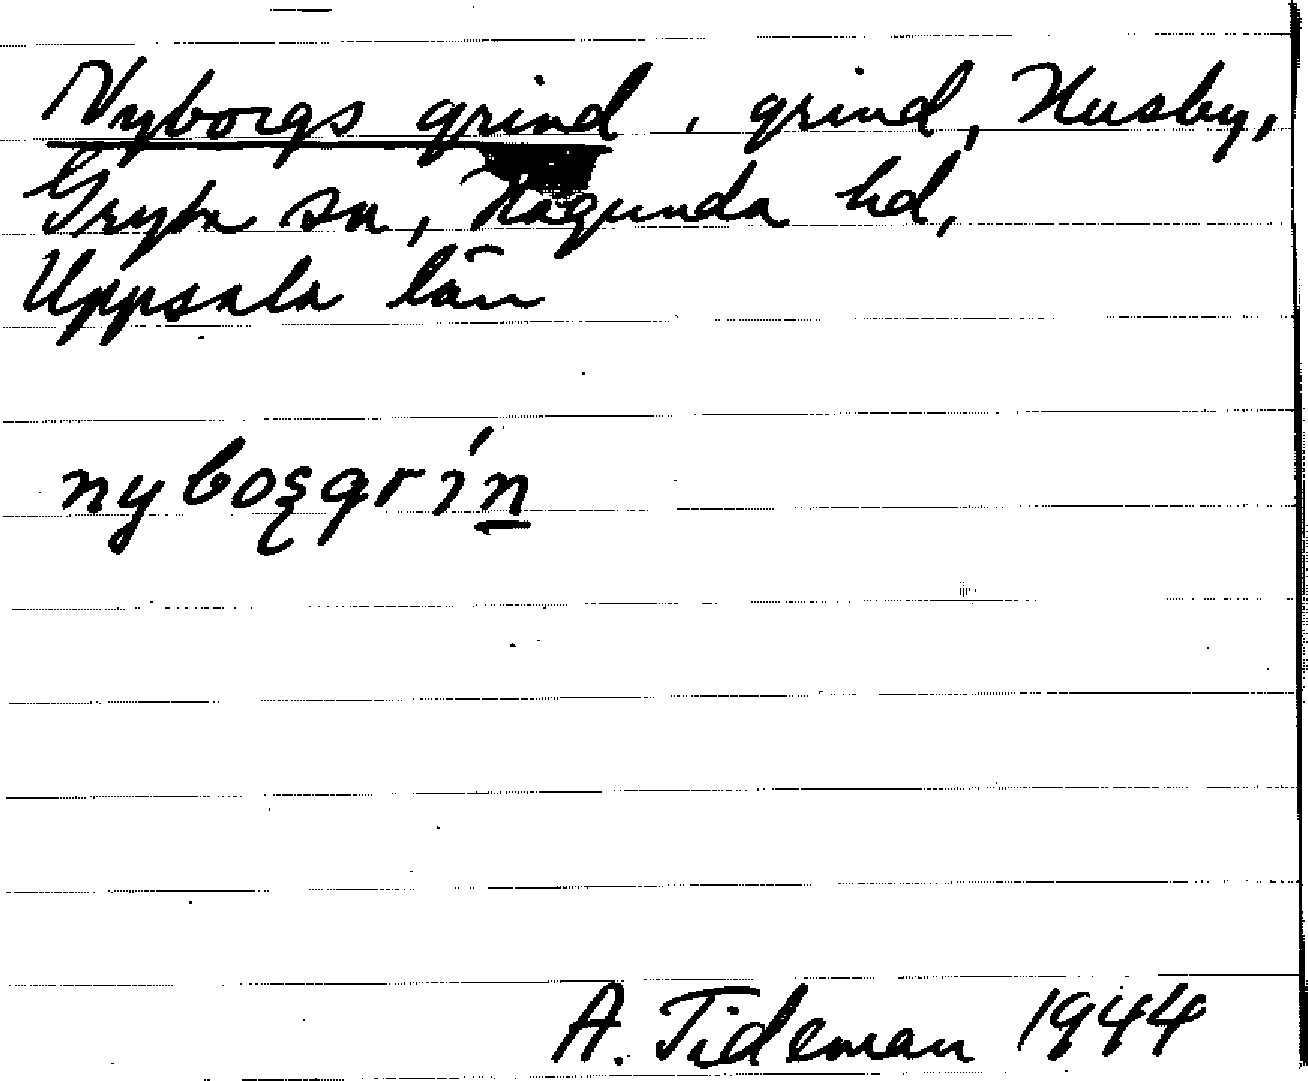 Nyborgs grind, grind, Husby,
Gryta sn, Hagunda hd,
Uppsala län
nybosgrín
A. Tideman 1944